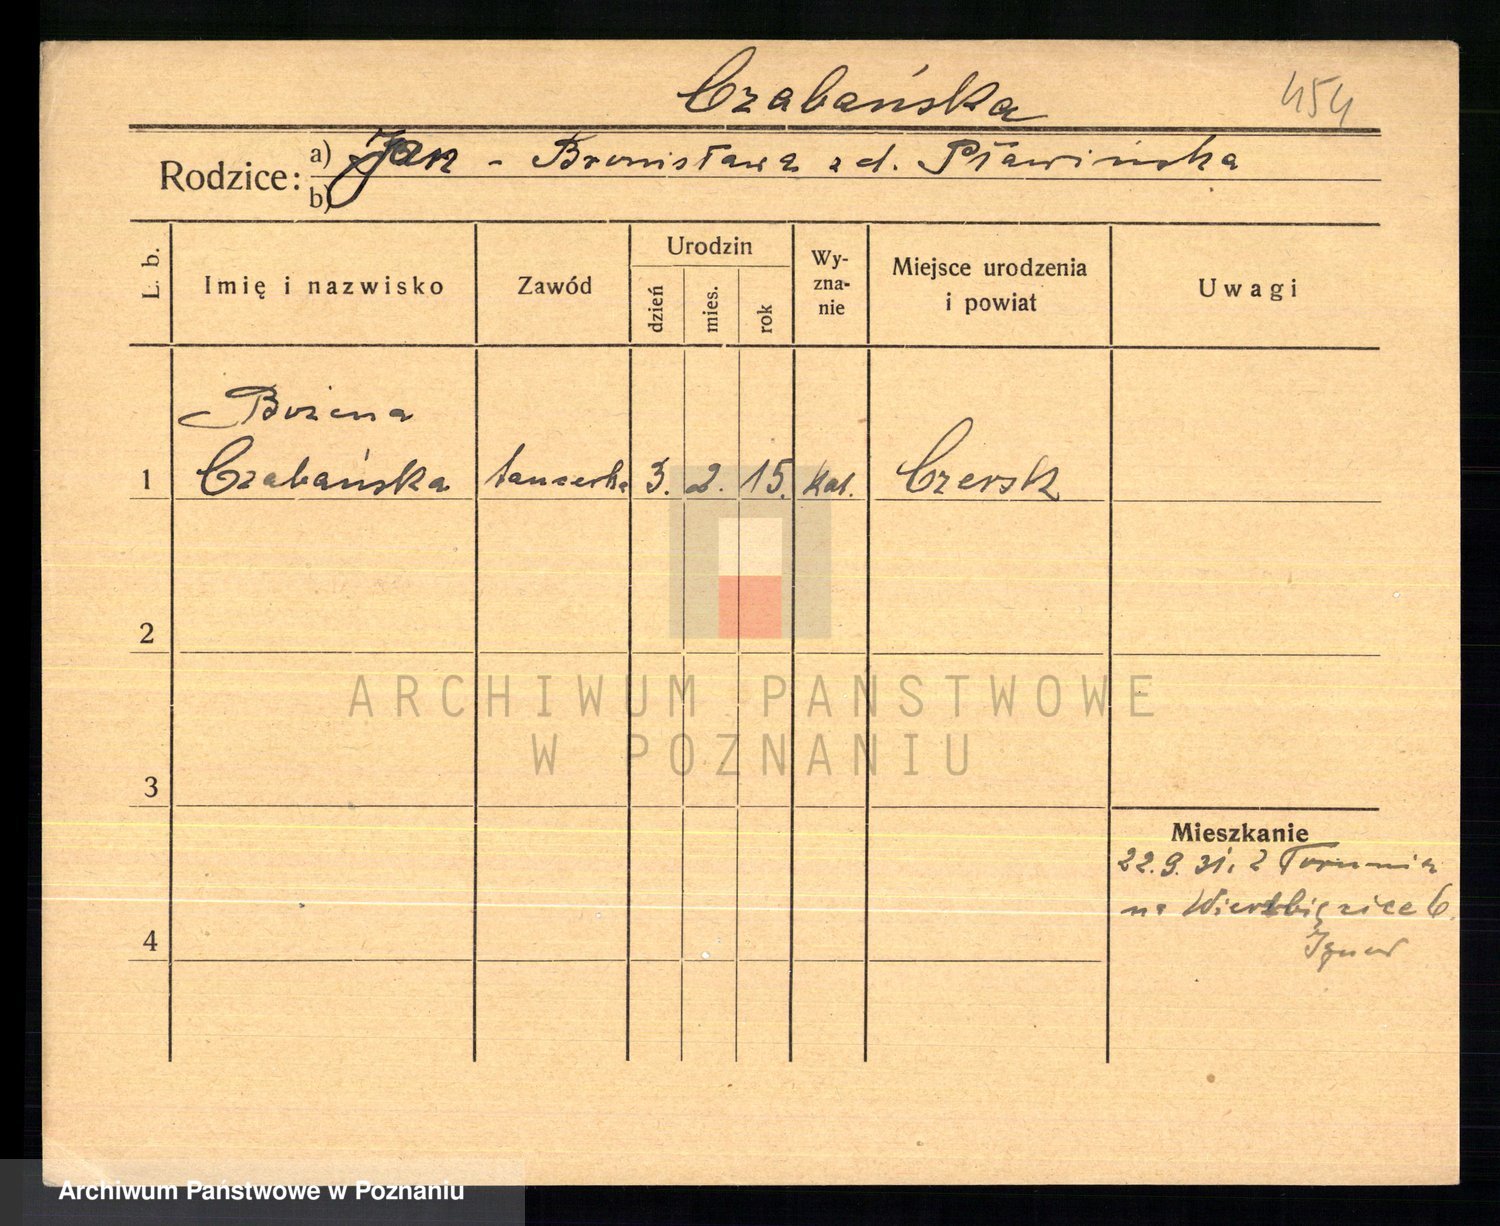 Czabańska
454
Rodzice: a) Jan - Bronisława z d. Pławińska
b)
L. b.
Imię i nazwisko
Zawód
Urodzin
dzień
mies.
rok
Wy-
zna-
nie
Miejsce urodzenia
i powiat
Uwagi
Bożena
1 Czabańska tancerka 3. 2. 15. kat. Czersk
2
3
4
Mieszkanie
22.9.31. z Torunia
na Wierzbięcice 6.
ARCHIWUM PAŃSTWOWE
W POZNANIU
Archiwum Państwowe w Poznaniu